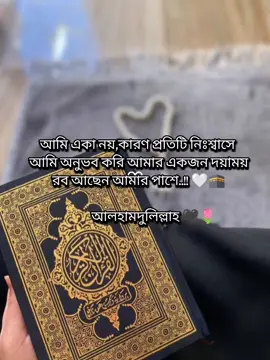 আমি একা নয়,কারণ প্রতিটি নিঃশ্বাসে
আমি অনুভব করি আমার একজন দয়াময়
রব আছেন আমার পাশে..!! 🤍🕋
আলহামদুলিল্লাহ 🖤🌷
القرآن الكريم